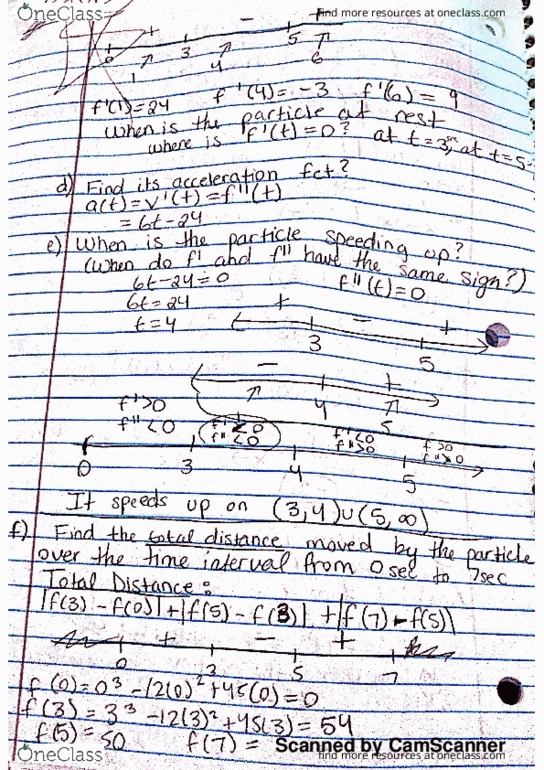 OneClass
find more resources at oneclass.com
+ −
0 1 3 4 5 6
f'(1)=24 f'(4)= -3 f'(6) = 9
When is the particle at rest
where is f'(t)=0? at t=3, at t=5
d) Find its acceleration fct?
a(t)=v'(t)=f''(t)
= 6t-24
e) When is the particle speeding up?
(When do f' and f'' have the same sign?)
6t-24=0 f''(t)=0
6t=24
t=4
+ − +
3 5
− +
4 5
f'>0
f''<0
f'<0
f''<0
f'<0
f''>0
f'>0
f''>0
0 3 4 5
It speeds up on (3,4)∪(5,∞)
f) Find the total distance moved by the particle
over the time interval from 0sec to 7sec
Total Distance:
|f(3)-f(0)|+|f(5)-f(3)|+|f(7)-f(5)|
+ − +
0 3 5 7
f(0)=0³-12(0)²+45(0)=0
f(3)=3³-12(3)²+45(3)=54
f(5)=50 f(7)=
Scanned by CamScanner
OneClass
find more resources at oneclass.com